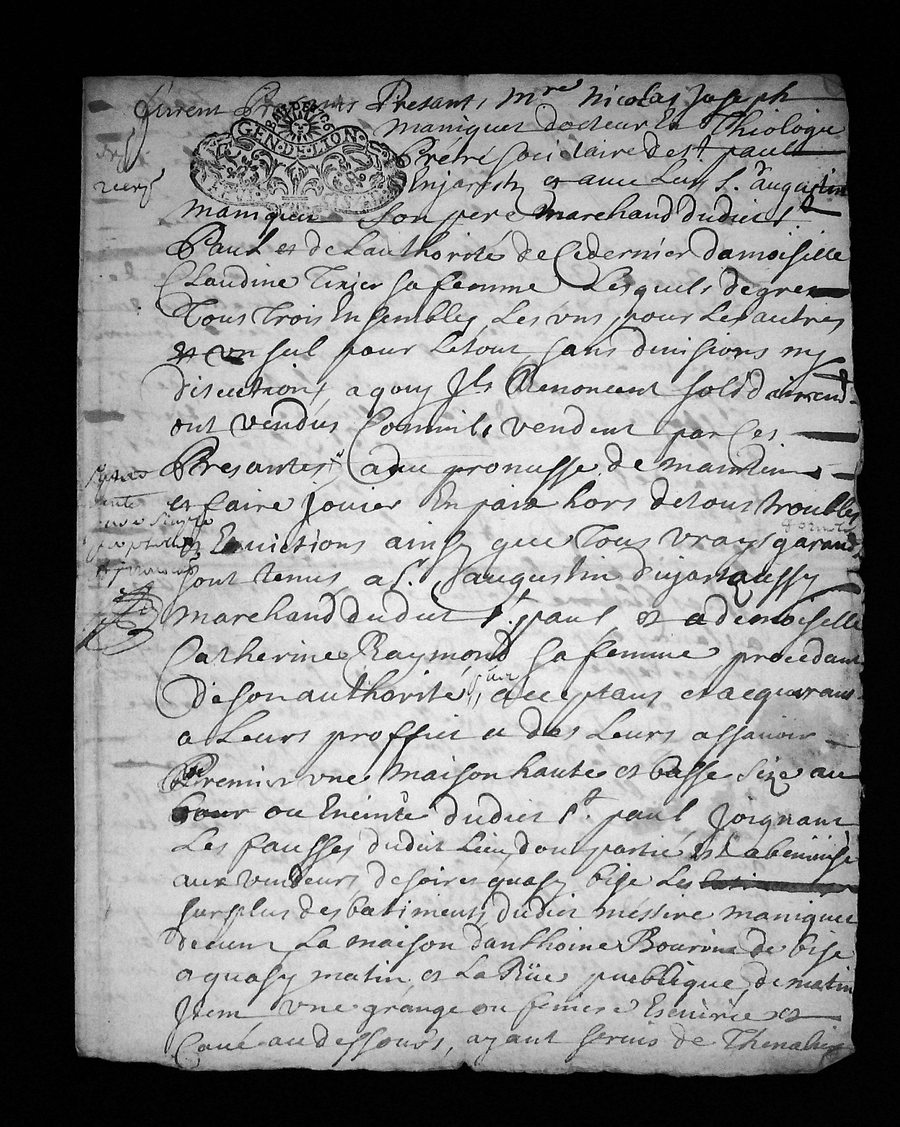 furent Presants, Mre Nicolas Joseph
GEN·DE·LION
maniquet docteur en Theologie
Prêtre Soci daire de st paul
Enjarest et avec Luy Sr augustin
maniquet son pere marchand dudict st
Paul et de Lauthorité de Cedernier damoiselle
Claudine Tixier sa femme Lesquels de gré
Tous Trois Ensembles, Les vns pour Les autres
et vn seul pour Letout, sans divisions ny
discutions, a quoy Ils Renoncent solidairement
ont vendus Comm'ils vendent par Ces
Presantes, avec promesse de maintenir
et faire Jouier En paix hors detous troubles
et Evictions ainsy que Tous vrays garands
sont tenus a Sr augustin dujartaussy
marchand dudict st. paul et a demoiselle
Catherine Raymond sa femme procedant
de son authorité acceptans et acquerans
a Leurs proffict et des Leurs assavoir
Premier vne maison haute et basse size au
bour ou Enceinte dudict st. paul Joignant
Les fausses dudict Lieu dont partie est abeneuisé
aux vendeurs de soir et quasy bise Les
surplus des batiments dudict messire maniquet
devent La maison danthoine Bourin de bise
et quasy matin et La Rüe puplique de matin
Item vne grange ou feniere Ecuirie et
Cave au dessous, ayant servis de Thenalier